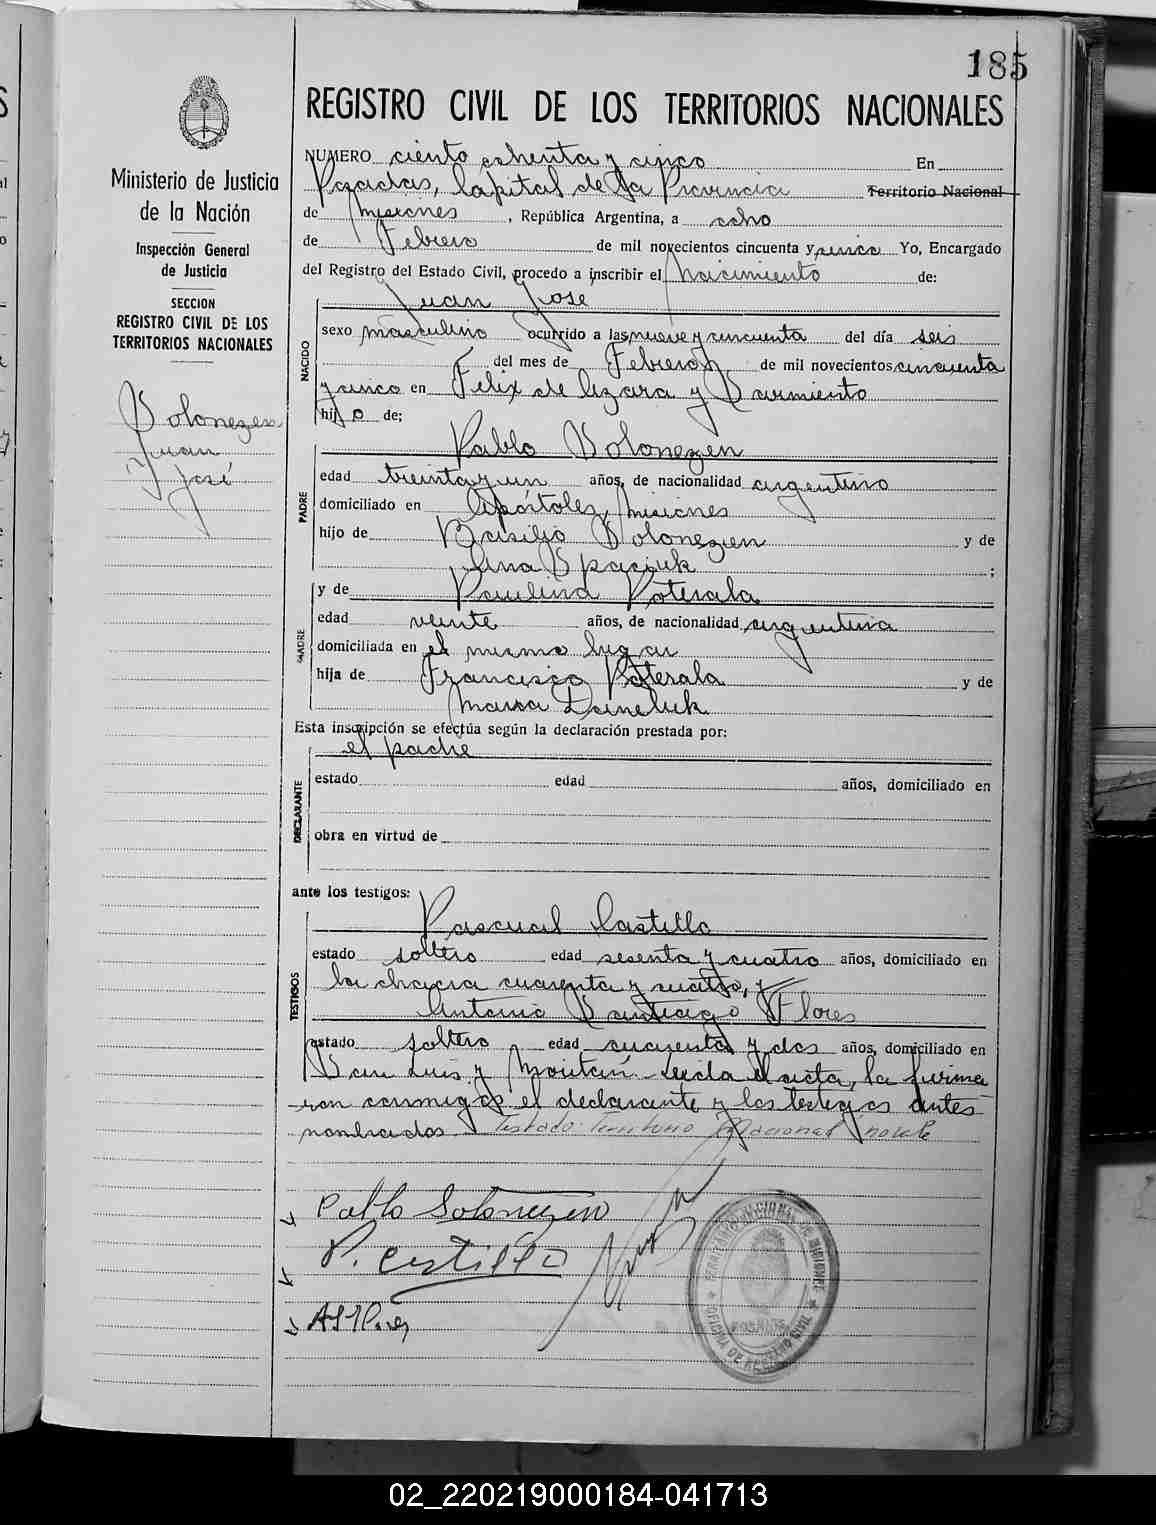 185
REGISTRO CIVIL DE LOS TERRITORIOS NACIONALES
Ministerio de Justicia
de la Nación
Inspección General
de Justicia
SECCION
REGISTRO CIVIL DE LOS
TERRITORIOS NACIONALES
Solonezen
Juan
José
NUMERO ciento ochenta y cinco En
Posadas, Capital de la Provincia Territorio Nacional
de Misiones, República Argentina, a ocho
de Febrero de mil novecientos cincuenta y cinco Yo, Encargado
del Registro del Estado Civil, procedo a inscribir el Nacimiento de:
Juan José
NACIDO
sexo masculino ocurrido a las nueve y cincuenta del día seis
del mes de Febrero de mil novecientos cincuenta
y cinco en Felix de Azara y Sarmiento
hijo de;
Pablo Solonezen
PADRE
edad treinta y un años, de nacionalidad argentino
domiciliado en Apóstoles, Misiones
hijo de Basilio Solonezen y de
Ana Spaciuk ;
MADRE
y de Paulina Poterala
edad veinte años, de nacionalidad argentina
domiciliada en el mismo lugar
hija de Francisco Poterala y de
Maria Daneluk
Esta inscripción se efectúa según la declaración prestada por:
el padre
DECLARANTE
estado edad años, domiciliado en
obra en virtud de
ante los testigos:
Pascual Castillo
TESTIGOS
estado soltero edad sesenta y cuatro años, domiciliado en
la chacra cuarenta y cuatro, y
Antonio Santiago Flores
estado soltero edad cuarenta y dos años, domiciliado en
San Luis y Moritán - Leida el acta, la firma
ron conmigo, el declarante y los testigos antes
nombrados Testado: Territorio Nacional no vale
Pablo Solonezen
P. Castillo
TERRITORIO NACIONAL DE MISIONES
POSADAS
OFICINA DE REGISTRO CIVIL
02_220219000184-041713